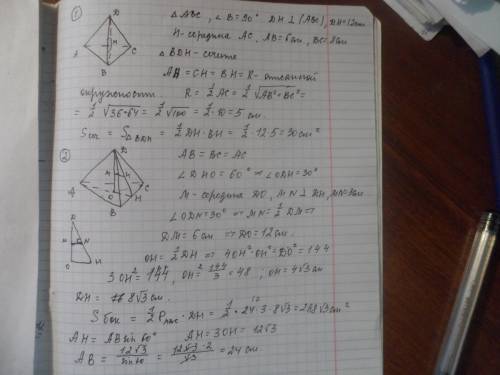 ① D △ABC, ∠B=90° DH⊥(ABC), DH=12см
H-середина AC, AB=6см, BC=8см
A H C △BDH - сечение
B AH = CH = BH = R - описанной
окружности. R = 1/2 AC = 1/2 √AB²+BC² =
= 1/2 √36+64 = 1/2 √100 = 1/2·10 = 5 см.
Sсеч = S△BDH = 1/2 DH·BH = 1/2·12·5 = 30 см²
② D AB = BC = AC
∠DHO = 60° ⇒ ∠ODH=30°
A C M - середина DO, MN⊥DH, MN=3см
O H
B ∠ODN=30° ⇒ MN = 1/2 DM ⇒
D DM = 6 см ⇒ DO = 12 см.
M N OH = 1/2 DH ⇒ 4OH²-OH² = DO² = 144
O H 3OH² = 144, OH² = 144/3 = 48; OH = 4√3 см
DH = 8√3 см.
Sбок = 1/2 Pосн · DH = 1/2 · 24·3·8√3 = 288√3 см²
AH = AB sin 60° AH = 3OH = 12√3
AB = 12√3/sin60 = 12√3·2/√3 = 24 см.